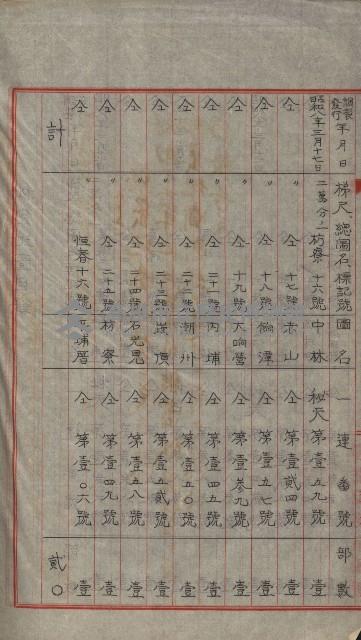 調製發行年月日 梯尺 總圖名 標記號圖名 一連番號 部數
昭和八年三月十七日 二萬分ノ一 枋寮 十六號 中林 秘天 第壹五九號 壹
仝 〃 仝 十七號 赤山 仝 第壹貳四號 壹
仝 〃 仝 十八號 仝 第壹五七號 壹
仝 〃 仝 十九號 大响營 仝 第壹叁九號 壹
仝 〃 仝 二十一號 內埔 仝 第壹四五號 壹
仝 〃 仝 二十二號 潮州 仝 第壹五〇號 壹
仝 〃 仝 二十三號 崁頂 仝 第壹五貳號 壹
仝 〃 仝 二十四號 石光見 仝 第壹五八號 壹
仝 〃 仝 二十五號 枋寮 仝 第壹四九號 壹
仝 〃 恒春 十六號 埔厝 仝 第壹〇六號 壹
計 貳〇